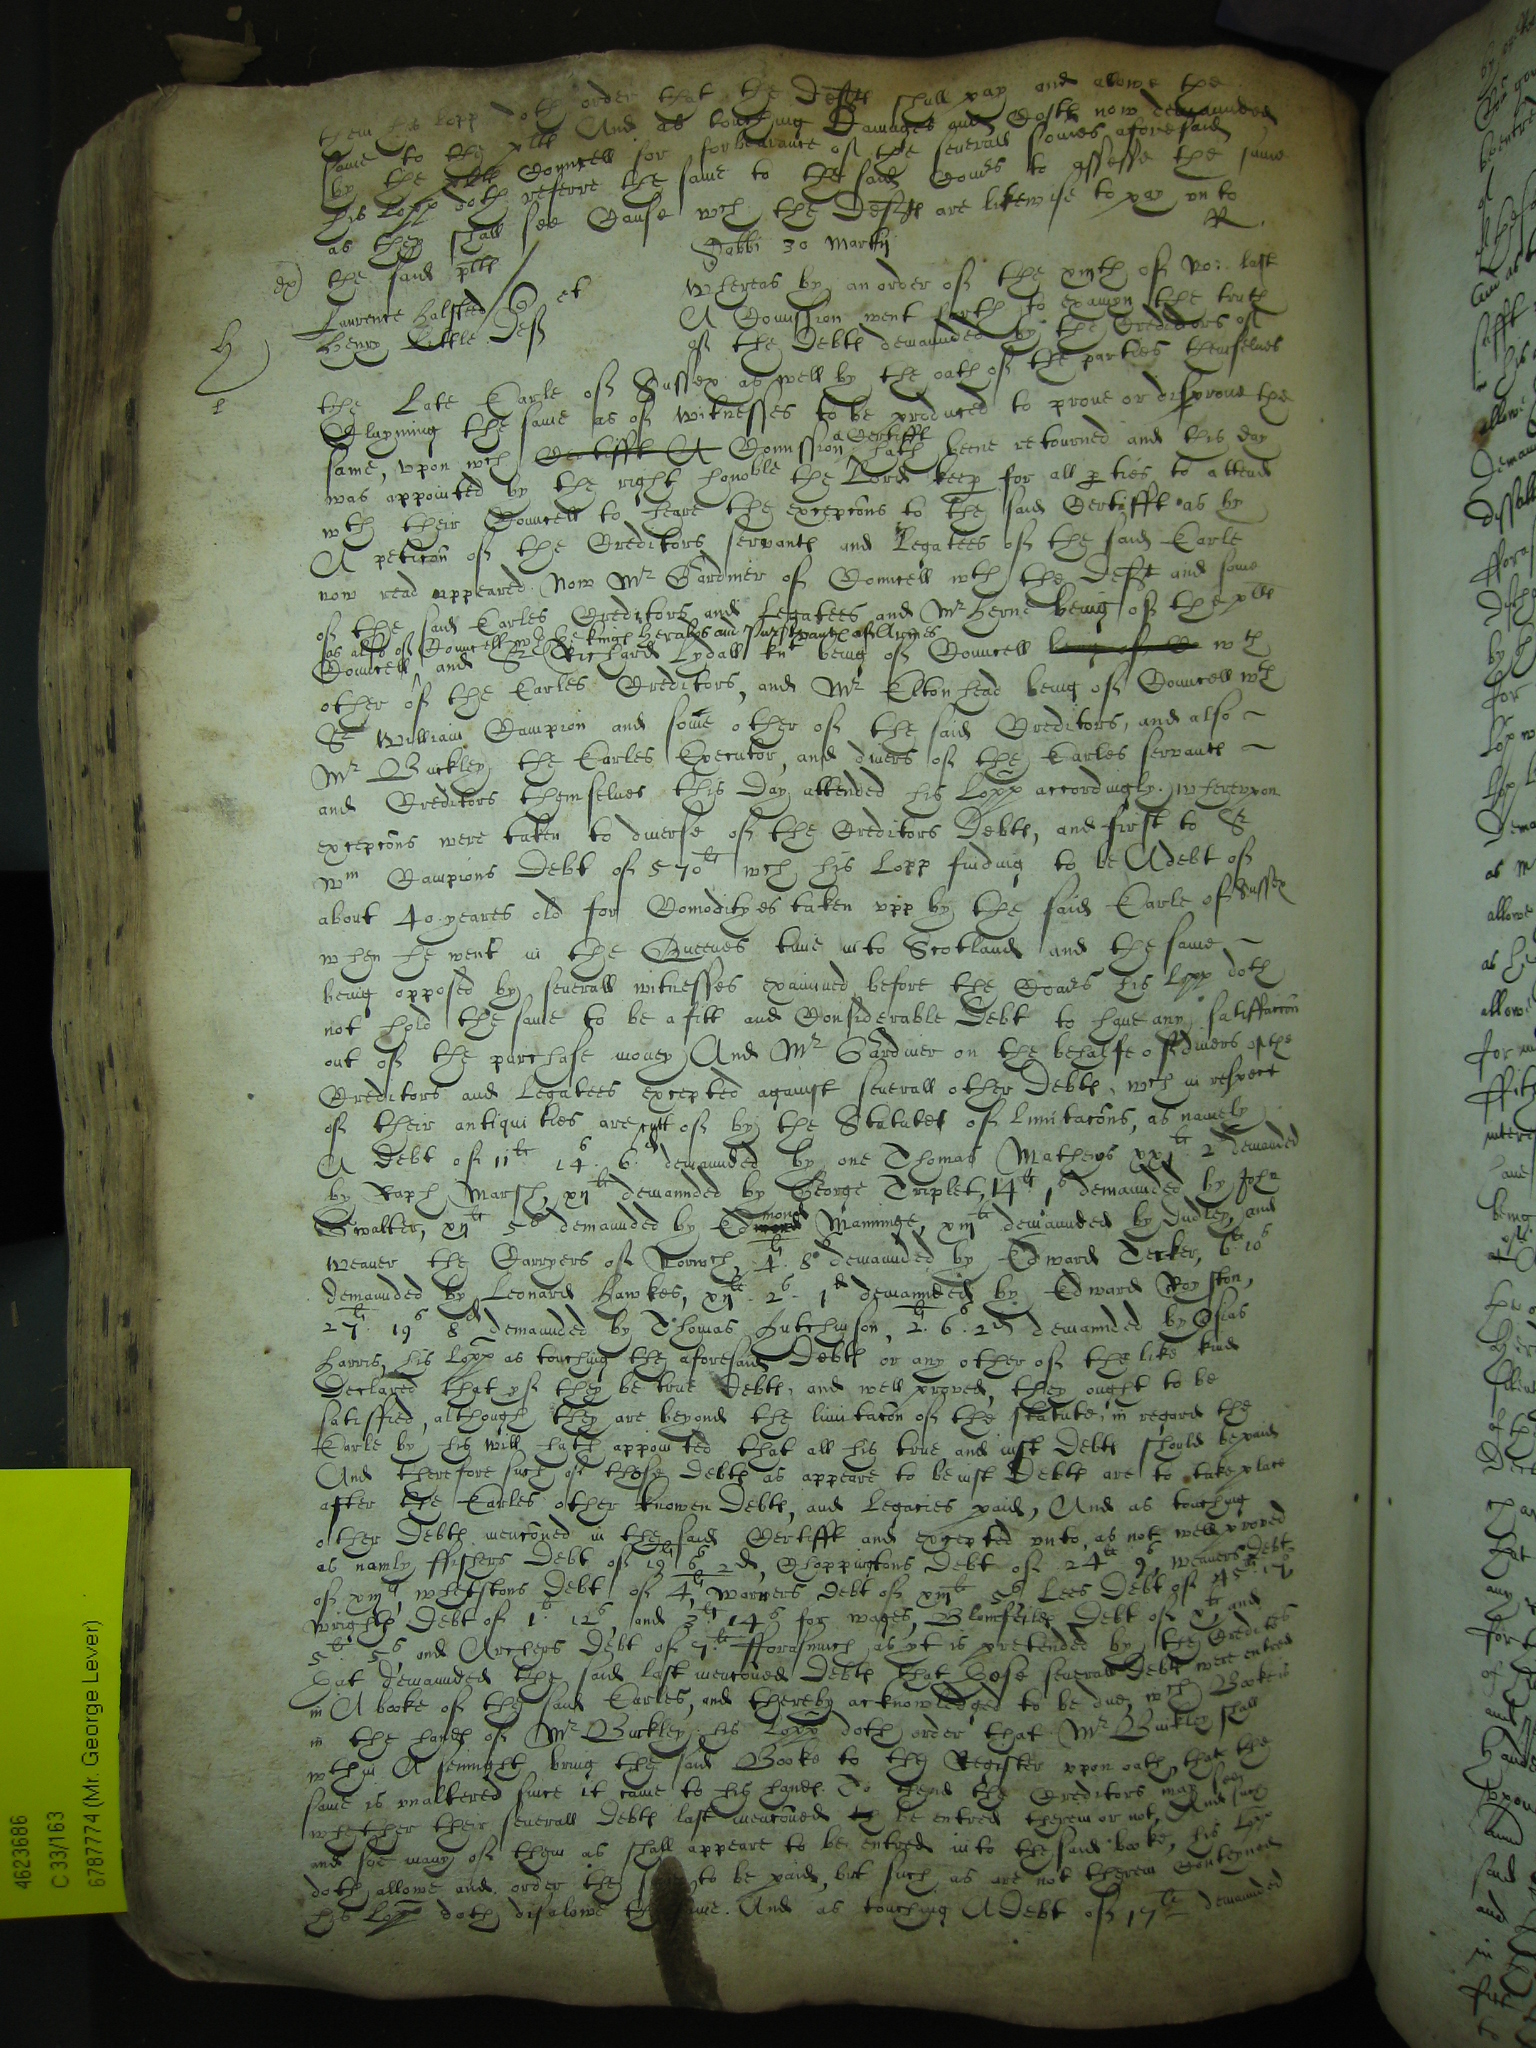 them his Lopp doth order that the Defts shall pay and allowe the
same to the plts And as touching Damages and Costs now demaunded
by the plts Councell for forbearance of the severall somes aforesaid
his Lopp doth referre the same to the said Comrs to assesse the same
as they shall see Cause wch the Defts are likewise to pay unto
the said plts
R
Sabbi 30 Martij
Laurence Halsted et
Henry Little Deft
H
Whereas by an order of the xiijth of No: last
A Comission went forth to examyn the truth
of the Debts demaunded by the Creditors of
the Late Earle of Sussex as well by the oath of the parties themselves
Clayming the same as of witnesses to be produced to prove or disprove the
same, upon wch Certifft A Comission a Certifft hath beene retourned and this day
was appointed by the right honoble the Lord keep for all pties to attend
wth their Councell to heare the excepcons to the said Certifft as by
A peticon of the Creditors servants and Legatees of the said Earle
now read appeared. Now Mr Gardiner of Councell wth the Deft and some
of the said Earles Creditors and Legatees and Mr Herne being of the plts
as also of Councell wth the kings Heralds and Pursivants of Armes
Councell and Sr Richard Lydall knt being of Councell wth
other of the Earles Creditors, and Mr Eltonhead being of Councell wth
Sr William Campion and some other of the said Creditors, and also
Mr Buckley the Earles Executor, and divers of the Earles servants
and Creditors themselves this day attended his Lopp accordingly. Whereupon
excepcons were taken to diverse of the Creditors Debts, and first to Sr
Wm Campions Debt of 570li wch his Lopp finding to be A debt of
about 40 yeares old for Comodityes taken upp by the said Earle of Sussex
when he went in the Queenes time into Scotland and the same
being opposed by severall witnesses examined before the Comrs his Lopp doth
not hold the same to be a fitt and Considerable Debt to have any satisfaccon
out of the purchase money And Mr Gardiner on the behalfe of divers of the
Creditors and Legatees excepted against severall other Debts, wch in respect
of their antiquities are cutt of by the Statutes of limitacons, as namely
A Debt of 11li 14s 6d demaunded by one Thomas Mathews xxjli 2 demaunded
by Raph Marsh, xijli demaunded by George Triplet, 14li 1s demaunded by John
Swalter, xijli 5s demaunded by Edmond Manninge, xiijli demaunded by Dudley, and
Weaver the Carryers of Norwch, 4li 8s demaunded by Edward Tecker, 6li 10s
demaunded by Leonard Hawkes, xijli 2s 1d demaunded by Edward Royston,
27li 19s 8d demaunded by Thomas Hutchinson, 2li 6s 2d demaunded by Osias
Harris, his Lopp as touching the aforesaid Debts or any other of the like kind
Declared that yf they be true Debts, and well proved, they ought to be
satisfied, although they are beyond the limitacon of the statute, in regard the
Earle by his will hath appointed that all his true and iust Debts should be paid
And therefore such of those Debts as appeare to be iust Debts are to take place
after the Earles other knowen Debts, and Legacies paid, And as touching
other Debts mencioned in the said Certifft and excepted unto, as not well proved
as namly ffishers Debt of 19li 6s 2d, Choppingtons Debt of 24li 9s, weavers Debt
of xiijli, whetstons Debt of 4li, warners Debt of xiijli 5s Lees Debt of 45li
wrights Debt of 1li 12s, and 3li 14s for wages, Blomfeilds Debt of xli and
5li 5s, and Archers Debt of 7li fforasmuch as yt is pretended by the Creditors
that demaunded the said last mencioned Debts that those severall Debts were entred
in A booke of the said Earles, and thereby acknowledged to be due, wch Booke is
in the hands of Mr Buckley his Lopp doth order that Mr Buckley shall
wthin A sennight bring the said Booke to the Register upon oath, that the
same is unaltered since it came to his hands. To thend the Creditors may see
whether their severall Debts last mencioned be entred therein or not, And such
and soe many of them as shall appeare to be entred into the said booke, his Lopp
doth allowe and order the same to be paid, but such as are not therein Conteyned
his Lopp doth disalowe the same. And as touching A Debt of 17li demaunded
4623686
C 33/163
6787774 (Mr. George Lever)